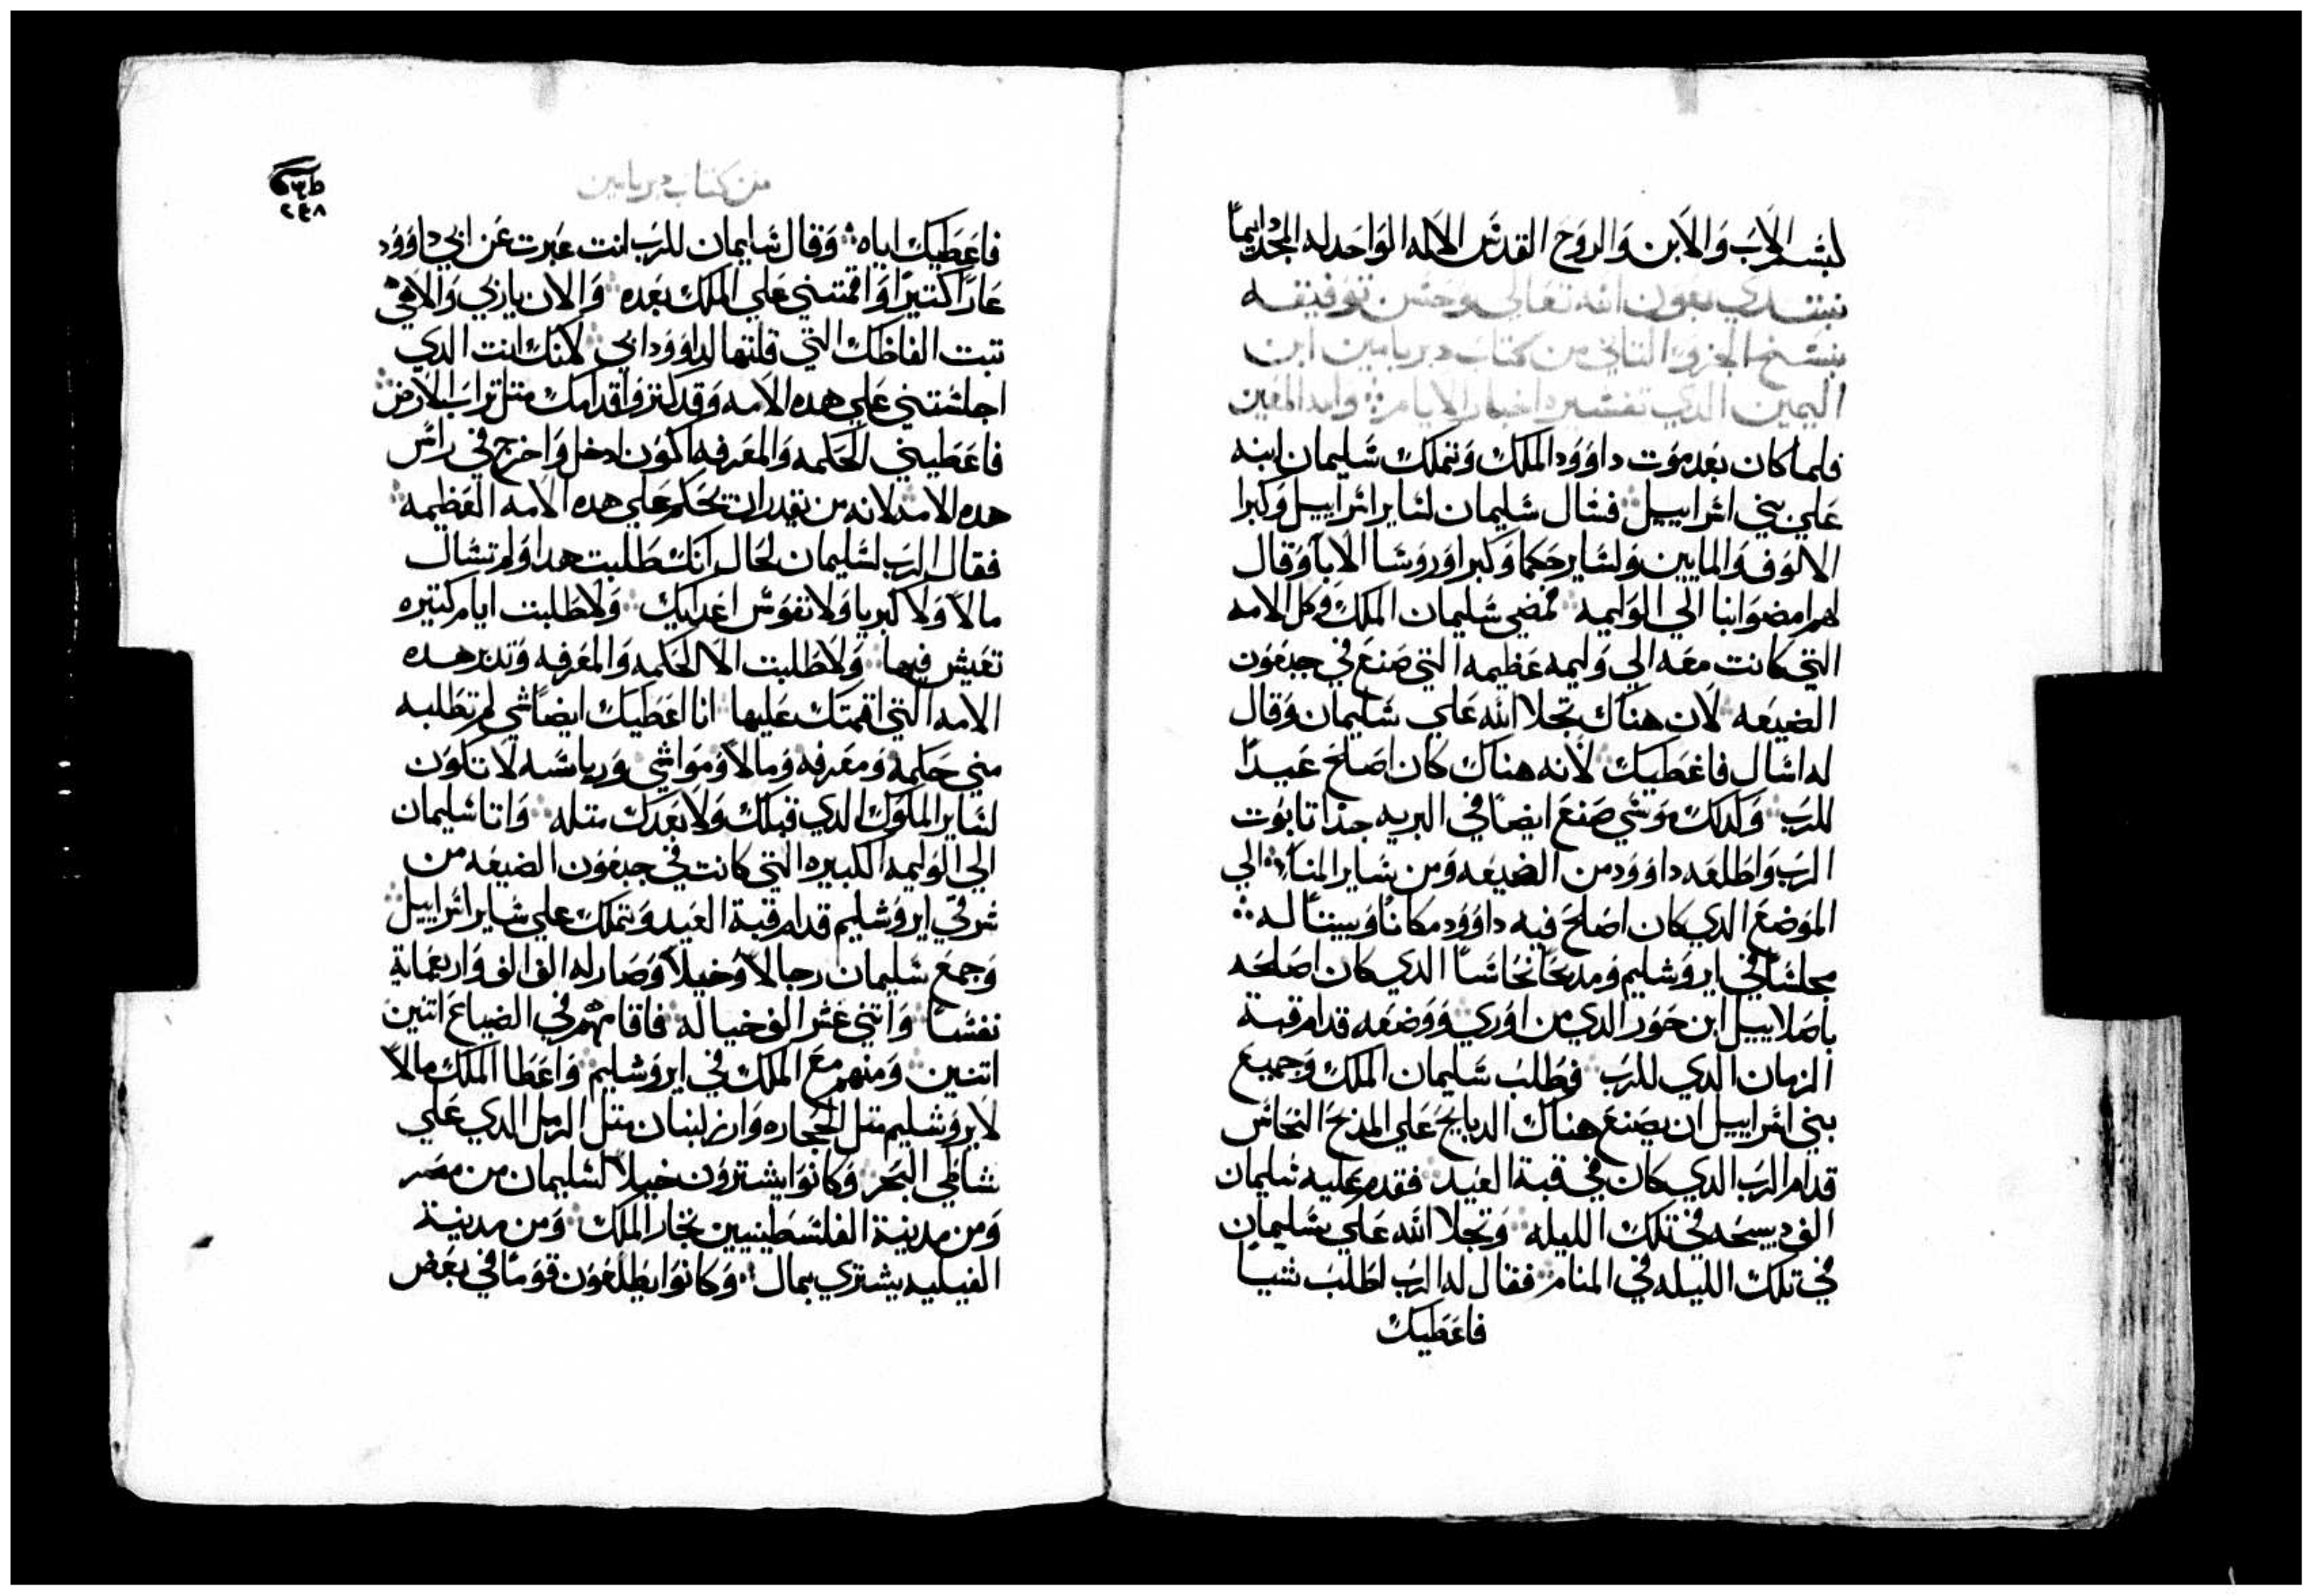 بسم الاب والابن والروح القدس الاله الواحد له المجد دايماً
نبتدي بعون الله تعالي وحسن توفيقه
بنسخ الجزو التاني من كتاب دبريامين ابن
اليمين الدي تفسيره اخبار الايام
فلما كان بعد موت داوود الملك وتملك سليمان ابنه
علي بني اسراييل فسال سليمان لساير اسراييل وكبرا
الالوف والمايين ولساير حكما وكبرا وروسا الابا وقال
لهم امضوا بنا الي الوليمه فمضي سليمان الملك وكل الامه
التي كانت معه الي وليمه عظيمه التي صنع في جبعون
الضيعه لان هناك تجلا الله علي سليمان وقال
له اسال فاعطيك لانه هناك كان اصلح عيداً
للرب وكدلك موسي صنع ايضاً في البريه جدا تابوت
الرب واطلعه داوود من الضيعه ومن ساير المنا الي
الموضع الدي كان اصلح فيه داوود مكاناً وبيتاً له
مجلساً في ايروشليم ومدبحاً نحاساً الدي كان اصلحه
باصلاييل ابن حور الدي من اوري ووضعه قدام قبة
الزمان الدي للرب فطلب سليمان الملك وجميع
بني اسراييل ان يصنع هناك الدبايح علي المدبح النحاس
قدام الرب الدي كان في قبة العيد فقدم عليه سليمان
الف دبيحه في تلك الليله وتجلا الله علي سليمان
في تلك الليله في المنام فقال له الرب اطلب شيا
فاعطيك
من كتاب دبريامين
٢٤٨
فاعطيك اياه وقال سليمان للرب انت عبرت عن ابي داوود
عاراً كتيراً واقمتني علي الملك بعده والان ياربي والاهي
تبت الفاظك التي قلتها لداوود ابي لانك انت الدي
اجلستني علي هده الامه وقد كتروا قدامك متل تراب الارض
فاعطيني الحكمه والمعرفه اكون ادخل واخرج في راس
هده الامه لانه من يقدر ان يحكم علي هده الامه العظيمه
فقال الرب لسليمان لحال انك طلبت هدا ولم تسال
مالاً ولا كبريا ولا نفوس اعدايك ولا طلبت ايام كتيره
تعيش فيها ولا طلبت الا الحكمه والمعرفه وتدبر هده
الامه التي اقمتك عليها انا اعطيك ايضاً شي لم تطلبه
مني حكمه ومعرفه ومالاً ومواشي ورياسه لا تكون
لساير الملوك الدي قبلك ولا بعدك متله واتا سليمان
الي الوليمه الكبيره التي كانت في جبعون الضيعه من
شرقي ايروشليم قدام قبة العيد وتملك علي ساير اسراييل
وجمع سليمان رجالاً وخيلاً وصار له الف الف واربعماية
نفساً واتني عشر الف خياله فاقامهم في الضياع اتنين
اتنين ومنهم مع الملك في ايروشليم واعطا الملك مالاً
لايروشليم متل الحجاره وارز لبنان متل الرمل الدي علي
شاطي البحر وكانوا يشترون خيلاً لسليمان من مصر
ومن مدينة الفلسطينيين تجار الملك ومن مدينة
الفيليه يشتري بمال وكانوا يطلعون قوماً في بعض